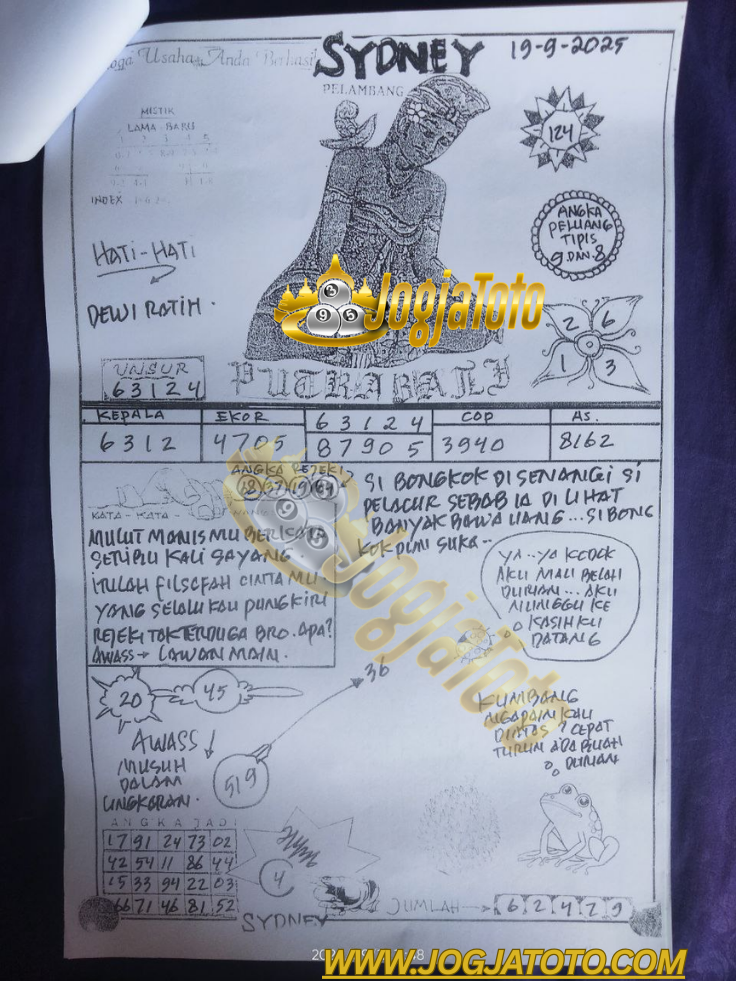 Usaha Anda Berhasil
SYDNEY
19-9-2025
PELAMBANG
MISTIK
LAMA-BARU
1 2 3 4 5
INDEX
124
ANGKA
PELUANG
TIPIS
9 DAN 8
HATI-HATI
DEWI RATIH.
JogjaToto
9 5
2 6
1 3
UNSUR
63124
PUTRA BALI
KEPALA EKOR 63124 COP AS.
6312 4705 87905 3940 8162
ANGKA REJEKI
KATA-KATA
MULUT MANIS MU BERKATA
SETIPU KALI SAYANG.
ITULAH FILSAFAH CINTA MU
YANG SELALU KAU PUNGKIRI
REJEKI TAK TERDUGA BRO. APA?
AWASS → LAWAN MAIN.
SI BONGKOK DI SENANGI SI
PELACUR SEBAB IA DI LIHAT
BANYAK BAWA UANG... SI BONG
KOK PUN SUKA..
YA..YA KODOK
AKU MAU BELAH
DURIAN... AKU
NUNGGU KE
KASIHKU
DATANG
JogjaToto
20 45
36
AWASS
MUSUH
DALAM
LINGKARAN.
519
KUMBANG
NGAPAIN KAU
DIATAS? CEPAT
TURUN ADA BUAH
DURIAN
ANGKA JADI
17 91 24 73 02
42 54 11 86 44
15 33 94 22 03
66 71 46 81 52
4
SYDNEY
JUMLAH → 6 2 4 7 9
WWW.JOGJATOTO.COM